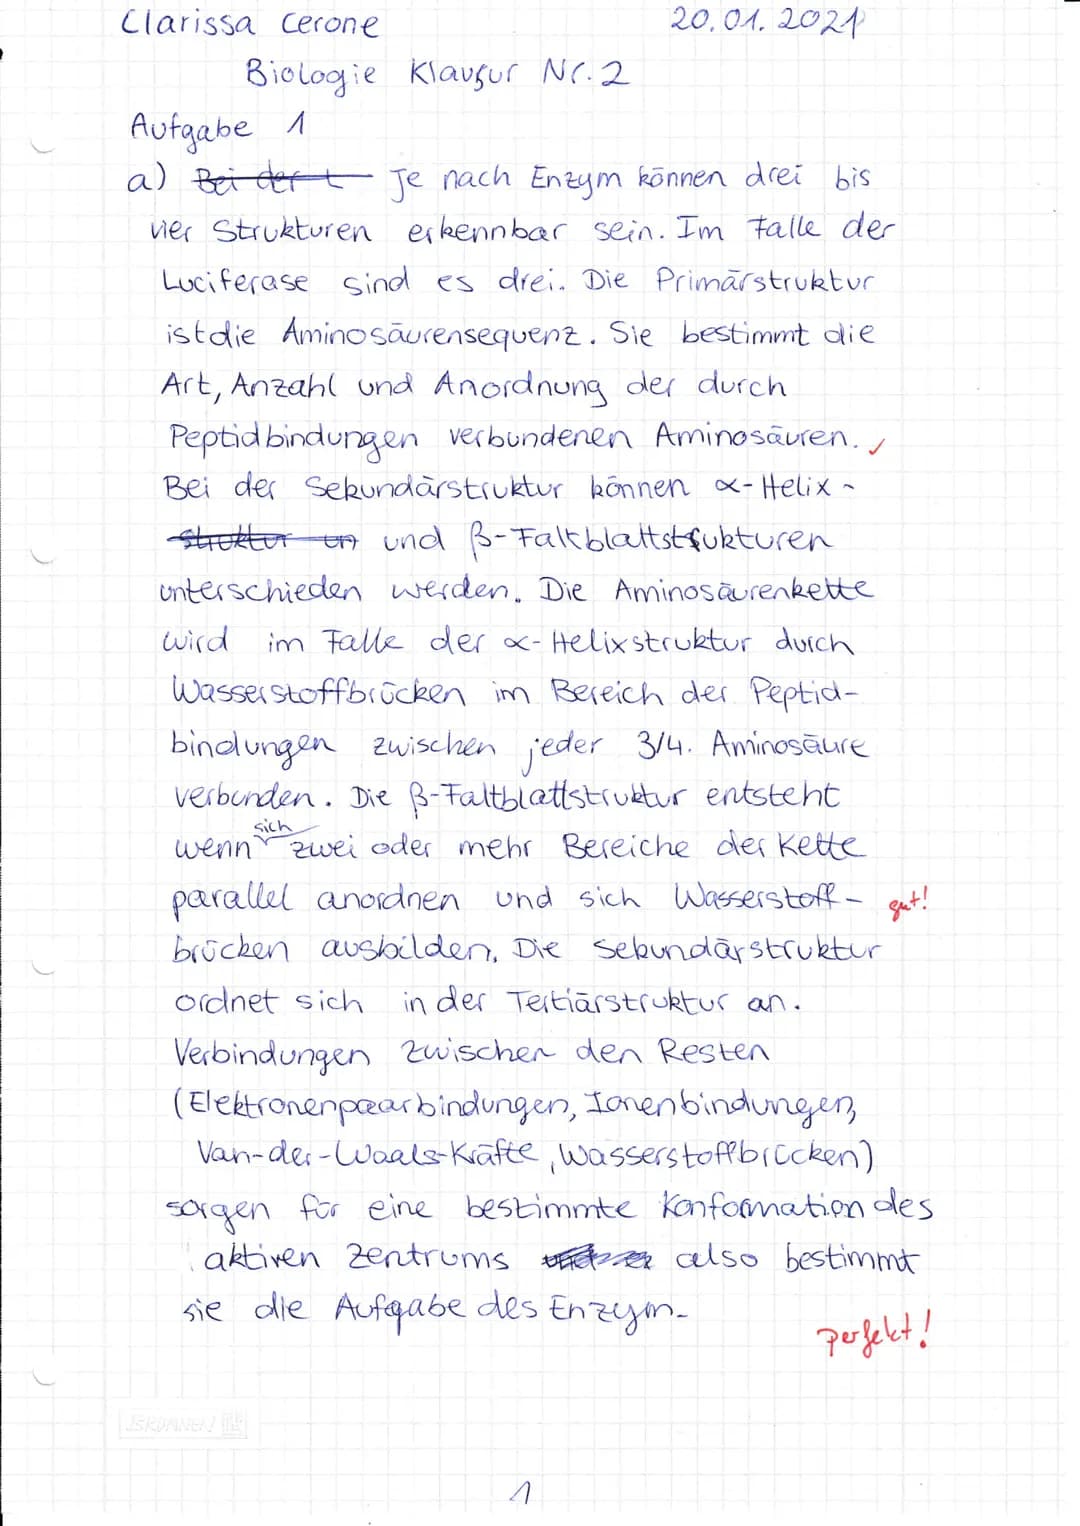 Clarissa Cerone 20.01.2021
Biologie Klausur Nr. 2
Aufgabe 1
a) Bei der t Je nach Enzym können drei bis
vier Strukturen erkennbar sein. Im Falle der
Luciferase sind es drei. Die Primärstruktur
ist die Aminosäurensequenz. Sie bestimmt die
Art, Anzahl und Anordnung der durch
Peptidbindungen verbundenen Aminosäuren. ✓
Bei der Sekundärstruktur können α-Helix-
struktur un und β-Faltblattstrukturen
unterschieden werden. Die Aminosäurenkette
wird im Falle der α-Helixstruktur durch
Wasserstoffbrücken im Bereich der Peptid-
bindungen zwischen jeder 3/4. Aminosäure
verbunden. Die β-Faltblattstruktur entsteht
wenn sich zwei oder mehr Bereiche der Kette
parallel anordnen und sich Wasserstoff- gut!
brücken ausbilden. Die Sekundärstruktur
ordnet sich in der Tertiärstruktur an.
Verbindungen zwischen den Resten
(Elektronenpaarbindungen, Ionenbindungen,
Van-der-Waals-Kräfte, Wasserstoffbrücken)
sorgen für eine bestimmte Konformation des
aktiven Zentrums also bestimmt
sie die Aufgabe des Enzym.
perfekt!
1